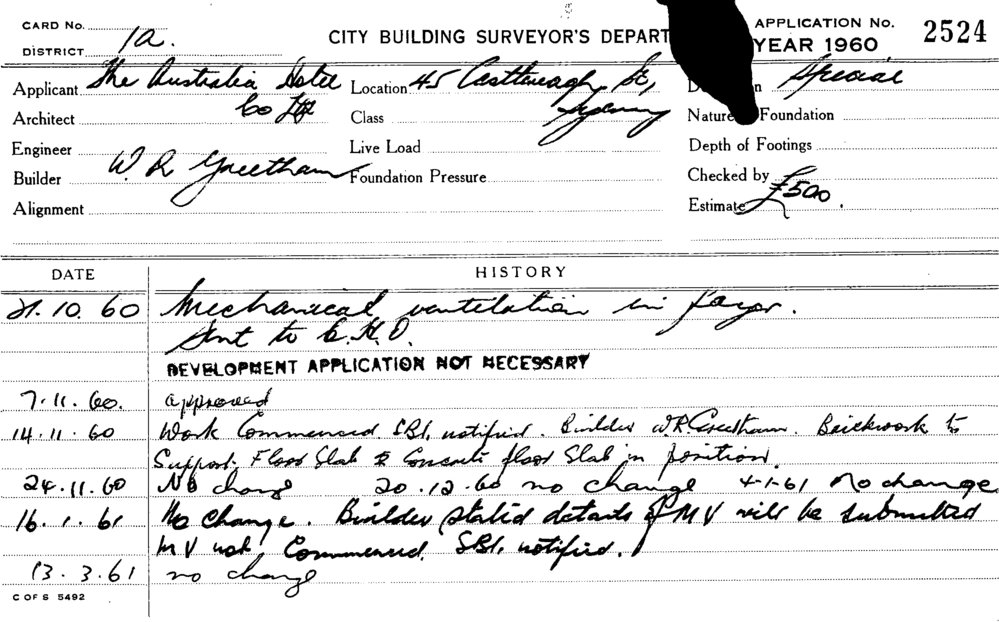 CARD No.
DISTRICT 1a.
CITY BUILDING SURVEYOR'S DEPART
APPLICATION No. 2524
YEAR 1960
Applicant The Australia Hotel Co Ltd
Location 45 Castlereagh St, Sydney
D n Special
Architect
Class
Nature Foundation
Engineer
Live Load
Depth of Footings
Builder W. R Greetham
Foundation Pressure
Checked by
Alignment
Estimate £500.
DATE HISTORY
21.10.60 Mechanical ventilation in foyer.
Sent to C.H.O.
DEVELOPMENT APPLICATION NOT NECESSARY
7.11.60. approved
14.11.60 Work Commenced. SBI. notified. Builder W.R. Greetham. Brickwork to
Support Floor Slab & Concrete floor Slab in position.
24.11.60 No change 20.12.60 no change 4-1-61 No change
16.1.61 No change. Builder stated details of MV will be submitted
MV not Commenced. SBI. notified.
13.3.61 no change
C OF S 5492